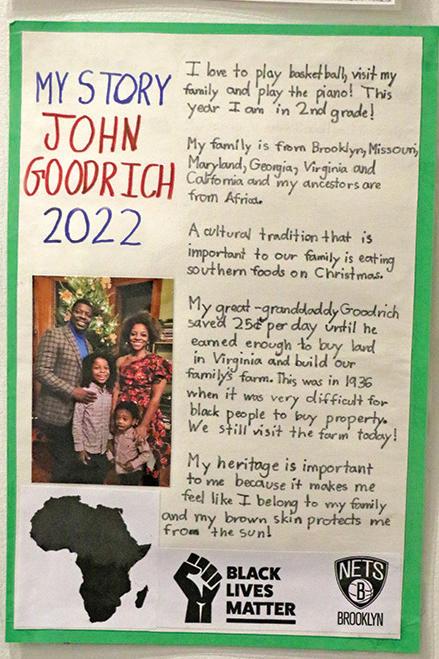 MY STORY
JOHN
GOODRICH
2022
I love to play basketball, visit my
family and play the piano! This
year I am in 2nd grade!
My family is from Brooklyn, Missouri,
Maryland, Georgia, Virginia and
California and my ancestors are
from Africa.
A cultural tradition that is
important to our family is eating
southern foods on Christmas.
My great-granddaddy Goodrich
saved 25¢ per day until he
earned enough to buy land
in Virginia and build our
family's farm. This was in 1936
when it was very difficult for
black people to buy property.
We still visit the farm today!
My heritage is important
to me because it makes me
feel like I belong to my family
and my brown skin protects me
from the sun!
BLACK
LIVES
MATTER
NETS
B
BROOKLYN